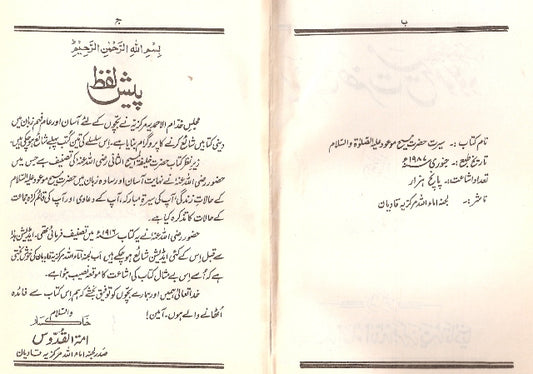 ب
نام کتاب :۔ سیرت حضرت مسیح موعود علیہ الصلوٰۃ والسلام
تاریخ طبع :۔ جنوری ۱۹۸۷ء
تعداد اشاعت :۔ پانچ ہزار
ناشر :۔ لجنہ اماء اللہ مرکزیہ قادیان
ج
بِسْمِ اللہِ الرَّحْمٰنِ الرَّحِیْمِ
پیش لفظ
مجلس خدام الاحمدیہ مرکزیہ نے بچوں کے لئے آسان اور عام فہم زبان میں
دینی کتابیں شائع کرنے کا پروگرام بنایا ہے۔ اِس سلسلے کی تین کتب پہلے شائع ہو چکی ہیں۔
زیر نظر کتاب حضرت خلیفۃ المسیح الثانی رضی اللہ عنہ کی تصنیف ہے جس میں
حضور رضی اللہ عنہ نے نہایت آسان اور سادہ زبان میں حضرت مسیح موعود علیہ السلام
کے حالاتِ زندگی، آپ کی سیرۃ مبارکہ، آپ کے دعاوی اور آپ کی قائم کردہ جماعت
کے حالات کا تذکرہ کیا ہے۔
حضور رضی اللہ عنہ نے یہ کتاب ۱۹۱۶ء میں تصنیف فرمائی تھی۔ ایڈیشن ہذا
سے قبل اِس کے کئی ایڈیشن شائع ہو چکے ہیں۔ اب لجنہ اماء اللہ مرکزیہ قادیان کی خوش بختی
ہے کہ اُسے اِس بے مثال کتاب کی اشاعت کا موقعہ نصیب ہوا ہے۔
خدا تعالیٰ ہمیں اور ہمارے بچوں کو توفیق بخشے کہ ہم اِس کتاب سے فائدہ
اُٹھانے والے ہوں۔ آمین!
والسلام
خاکسار
امۃ القدوس
صدر لجنہ اماء اللہ مرکزیہ قادیان